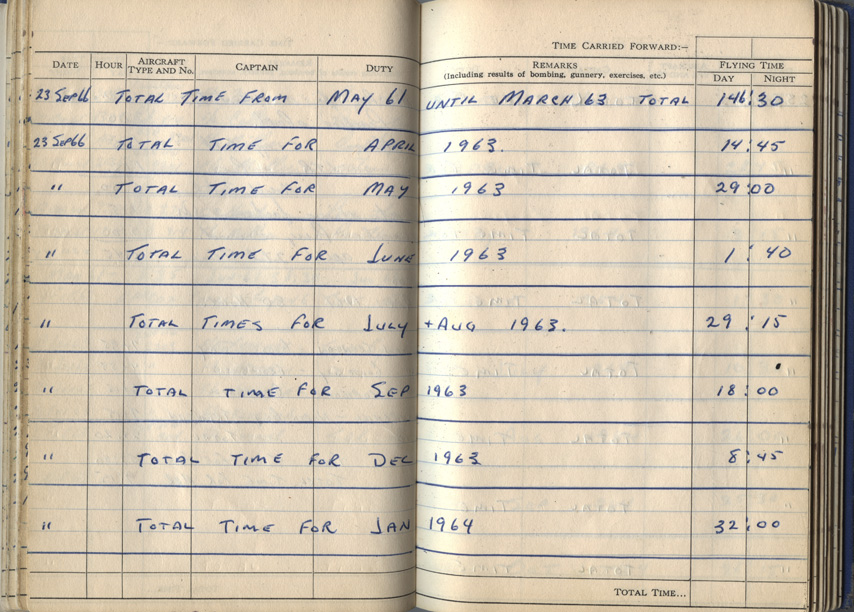 TIME CARRIED FORWARD:—
DATE HOUR AIRCRAFT TYPE AND NO. CAPTAIN DUTY REMARKS (Including results of bombing, gunnery, exercises, etc.) FLYING TIME DAY NIGHT
23 Sep 66 TOTAL TIME FROM MAY 61 UNTIL MARCH 63 TOTAL 146:30
23 Sep 66 TOTAL TIME FOR APRIL 1963. 14:45
" TOTAL TIME FOR MAY 1963 29:00
" TOTAL TIME FOR JUNE 1963 1:40
" TOTAL TIMES FOR JULY + AUG 1963. 29:15
" TOTAL TIME FOR SEP 1963 18:00
" TOTAL TIME FOR DEC 1963 8:45
" TOTAL TIME FOR JAN 1964 32:00
TOTAL TIME...